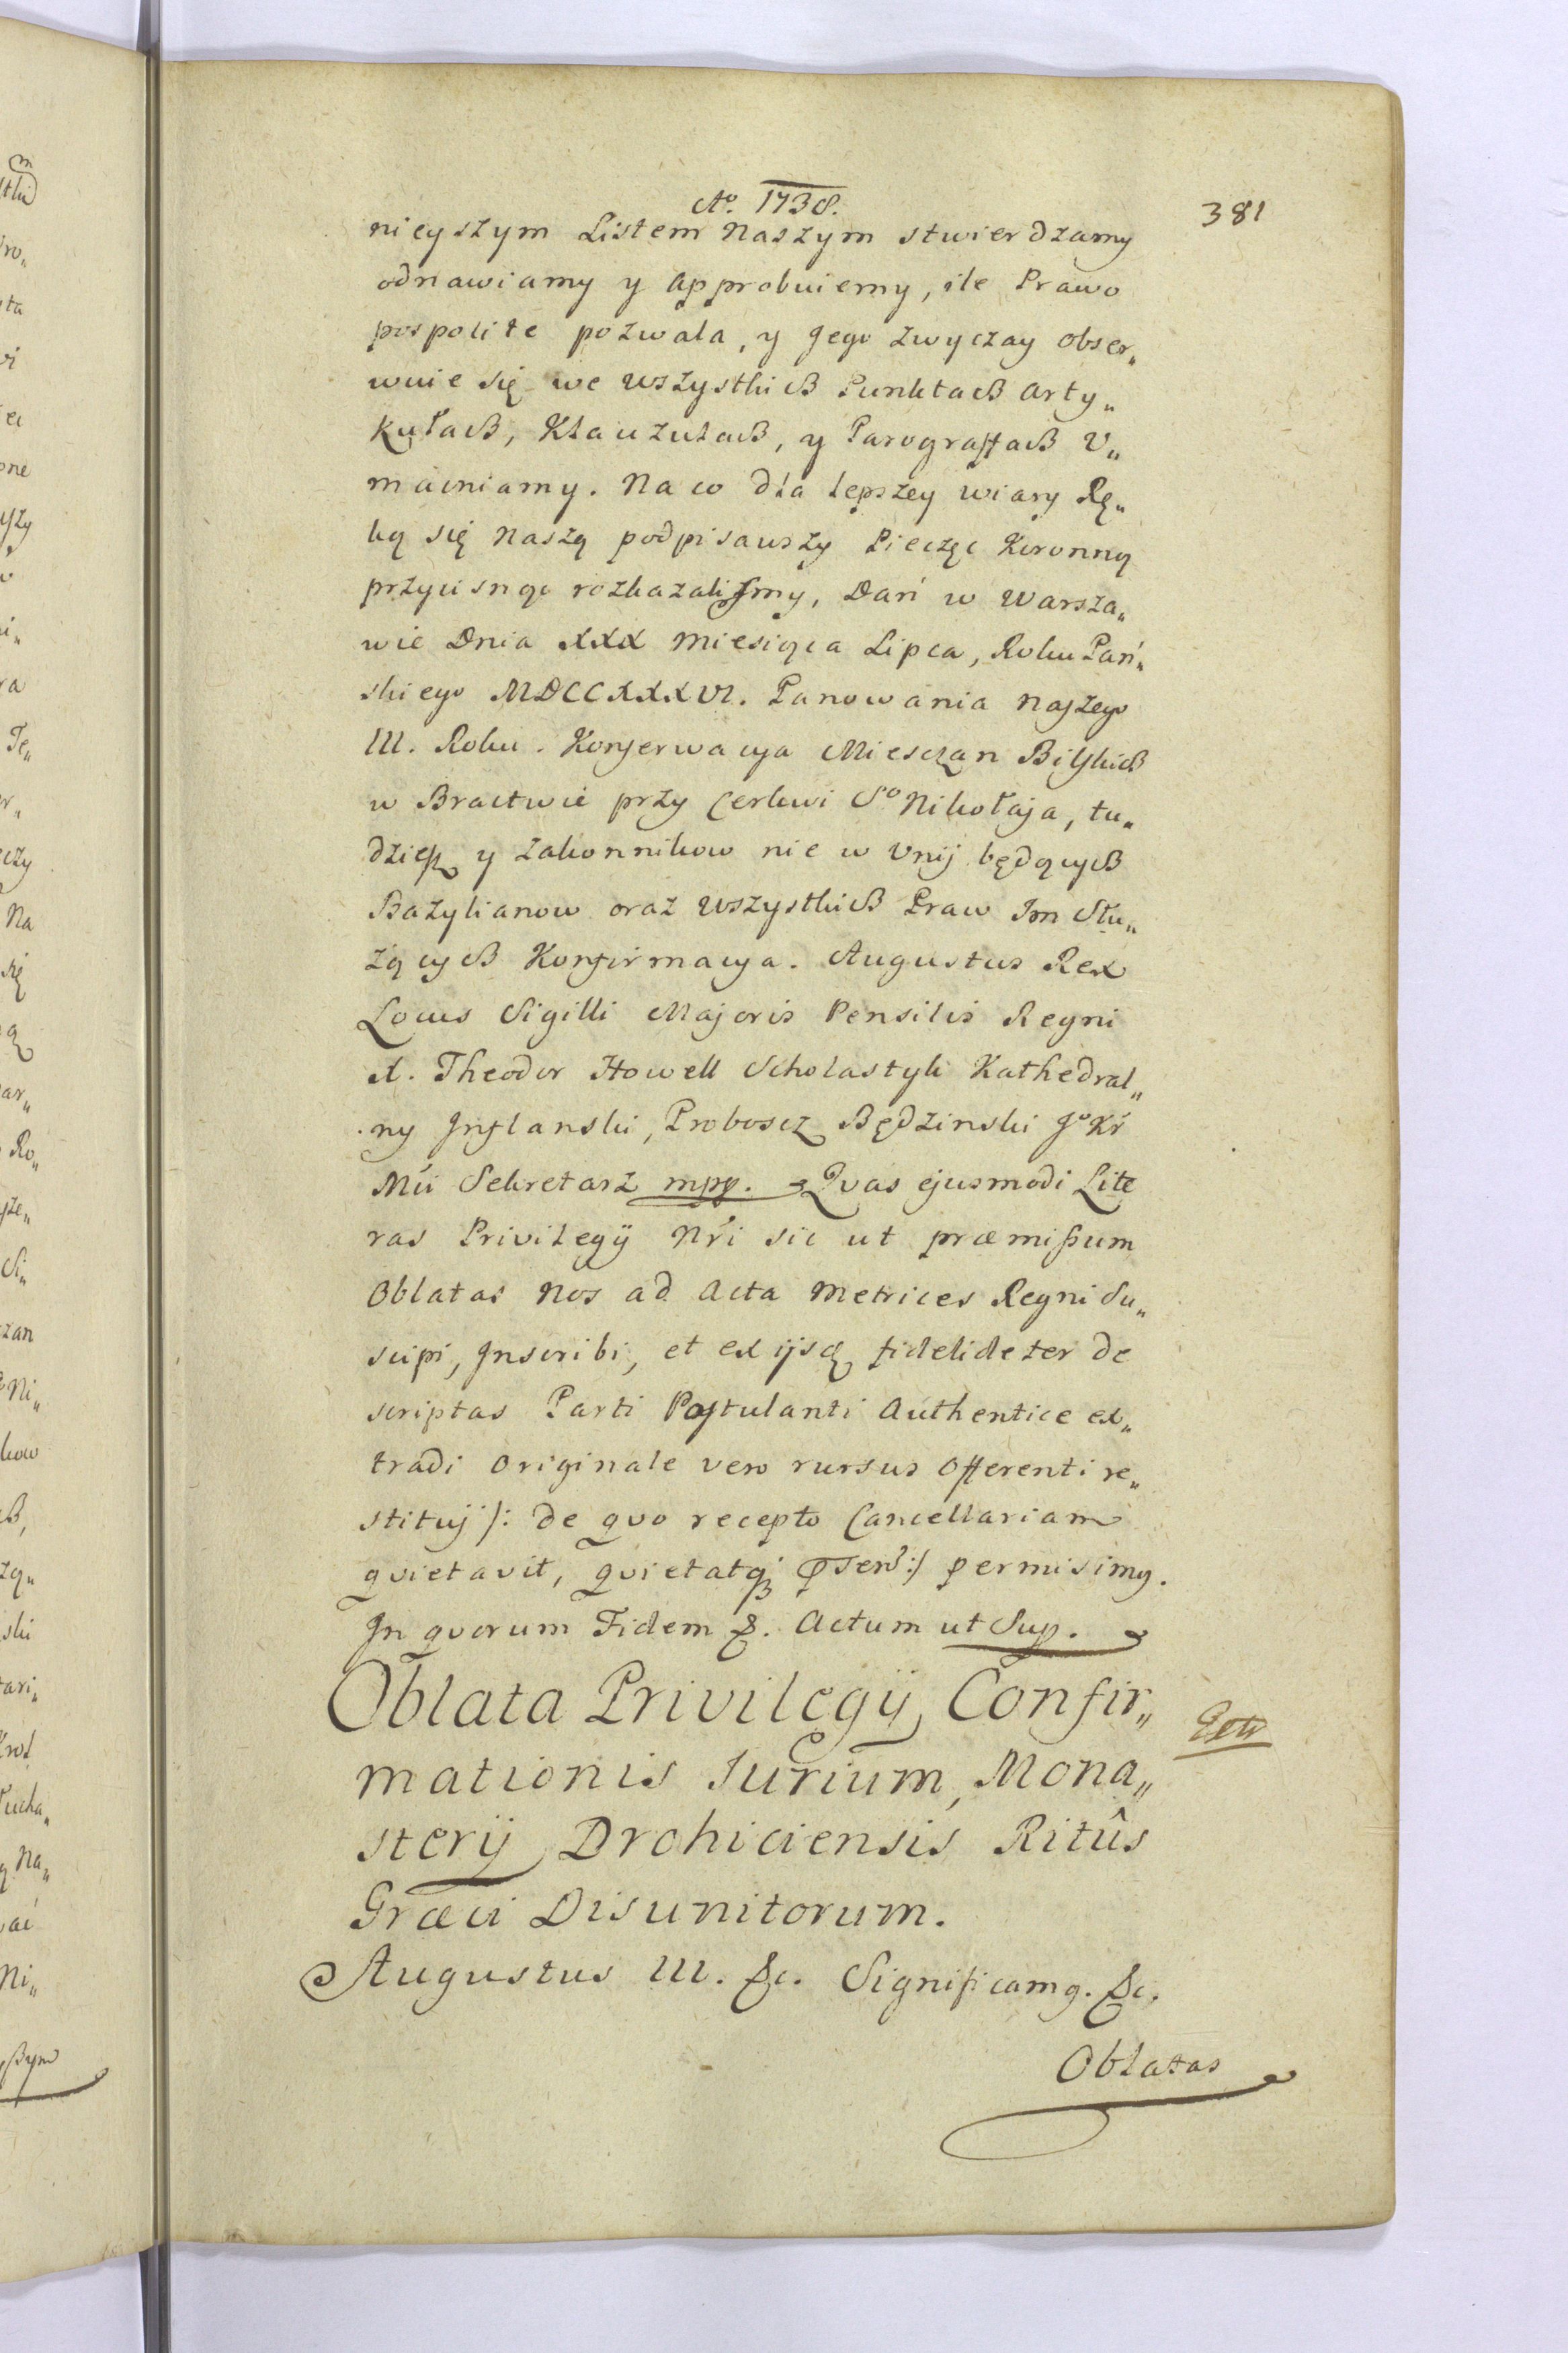 Ao. 1738.
381
nieyszym Listem Naszym stwierdzamy
odnawiamy y Approbuiemy, ile Prawo
pospolite pozwala, y Jego zwyczay obser„
wuie się we wszystkich Punktach Arty„
kułach, Klauzulach, y Parograffach U„
macniamy. Na co dla lepszey wiary Rę„
ką się Naszą podpisawszy Pieczęc Koronną
przycisnąc rozkazalismy, Dań w Warsza„
wie Dnia XXX Miesiąca Lipca, Roku Pań„
skiego MDCCXXXVI. Panowania Naszego
III. Roku. Konserwacya Miesczan Bilskich
w Bractwie przy Cerkwi So Nikołaja, tu„
dziesz y Zakonnikow nie w Unij będących
Bazylianow oraz wszystkich Praw Im Słu„
żących Konfirmacya. Augustus Rex
Locus Sigilli Majoris Pensilis Regni
X. Theodor Howell Scholastyk Kathedral„
ny Inflanski, Proboscz Będzinski Jo Kr
Mci Sekretarz mpp. Quas ejusmodi Lite
ras Privilegij Nri sic ut præmißum
Oblatas Nos ad Acta Metrices Regni Su„
scipi, Inscribi, et ex ijsq fidelideter de
scriptas Parti Postulanti Authentice ex„
tradi Originale vero rursus Offerenti re„
stituj /: de quo recepto Cancellariam
quietavit, quietatq; :/ permisimg.
In quorum Fidem &. Actum ut Sup.
Oblata Privilegij Confir„
mationis Jurium, Mona„
sterij Drohiciensis Ritûs
Græci Disunitorum.
Augustus III. &c. Significamg. &c.
Oblatas